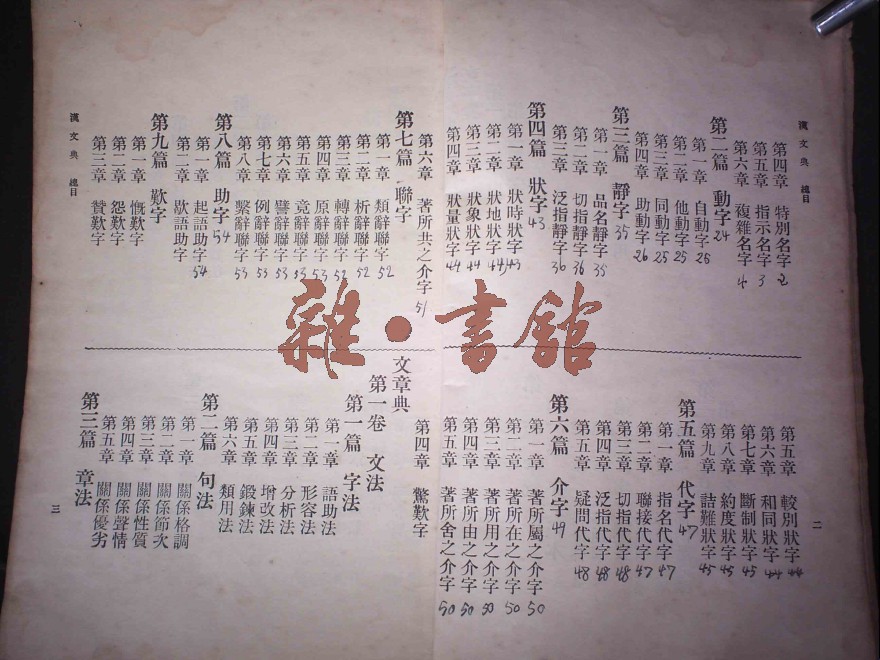 漢文典 總目
第四章 特別名字 2
第五章 指示名字 3
第六章 複雜名字 4
第二篇 動字 24
第一章 自動字 25
第二章 他動字 25
第三章 同動字 25
第四章 助動字 26
第三篇 靜字 35
第一章 品名靜字 35
第二章 切指靜字 36
第三章 泛指靜字 36
第四篇 狀字 43
第一章 狀時狀字 43
第二章 狀地狀字 44
第三章 狀象狀字 44
第四章 狀量狀字 44
第五章 較別狀字 44
第六章 和同狀字 44
第七章 斷制狀字 45
第八章 約度狀字 45
第九章 詰難狀字 45
第五篇 代字 47
第一章 指名代字 47
第二章 聯接代字 47
第三章 切指代字 48
第四章 泛指代字 48
第五章 疑問代字 48
第六篇 介字 49
第一章 著所屬之介字 50
第二章 著所在之介字 50
第三章 著所用之介字 50
第四章 著所由之介字 50
第五章 著所舍之介字 50
二
第六章 著所共之介字 51
第七篇 聯字
第一章 類辭聯字 52
第二章 析辭聯字 52
第三章 轉辭聯字 52
第四章 原辭聯字 53
第五章 竟辭聯字 53
第六章 譬辭聯字 53
第七章 例辭聯字 53
第八章 繫辭聯字 53
第八篇 助字 54
第一章 起語助字 54
第二章 歇語助字
第九篇 歎字
第一章 慨歎字
第二章 怨歎字
第三章 贊歎字
漢文典 總目
第四章 驚歎字
文章典
第一卷 文法
第一篇 字法
第一章 語助法
第二章 形容法
第三章 分析法
第四章 增改法
第五章 鍛鍊法
第六章 類用法
第二篇 句法
第一章 關係格調
第二章 關係節次
第三章 關係性質
第四章 關係聲情
第五章 關係優劣
第三篇 章法
三
雜·書館